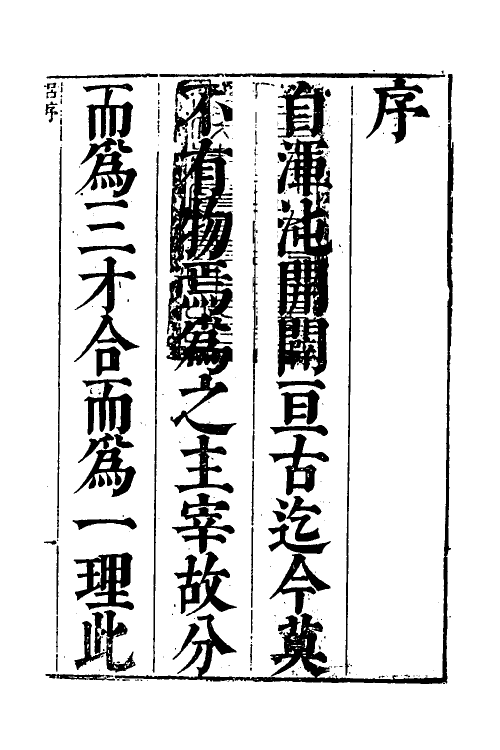 序
自渾沌開闢亘古迄今莫
不有物焉為之主宰故分
而為三才合而為一理此